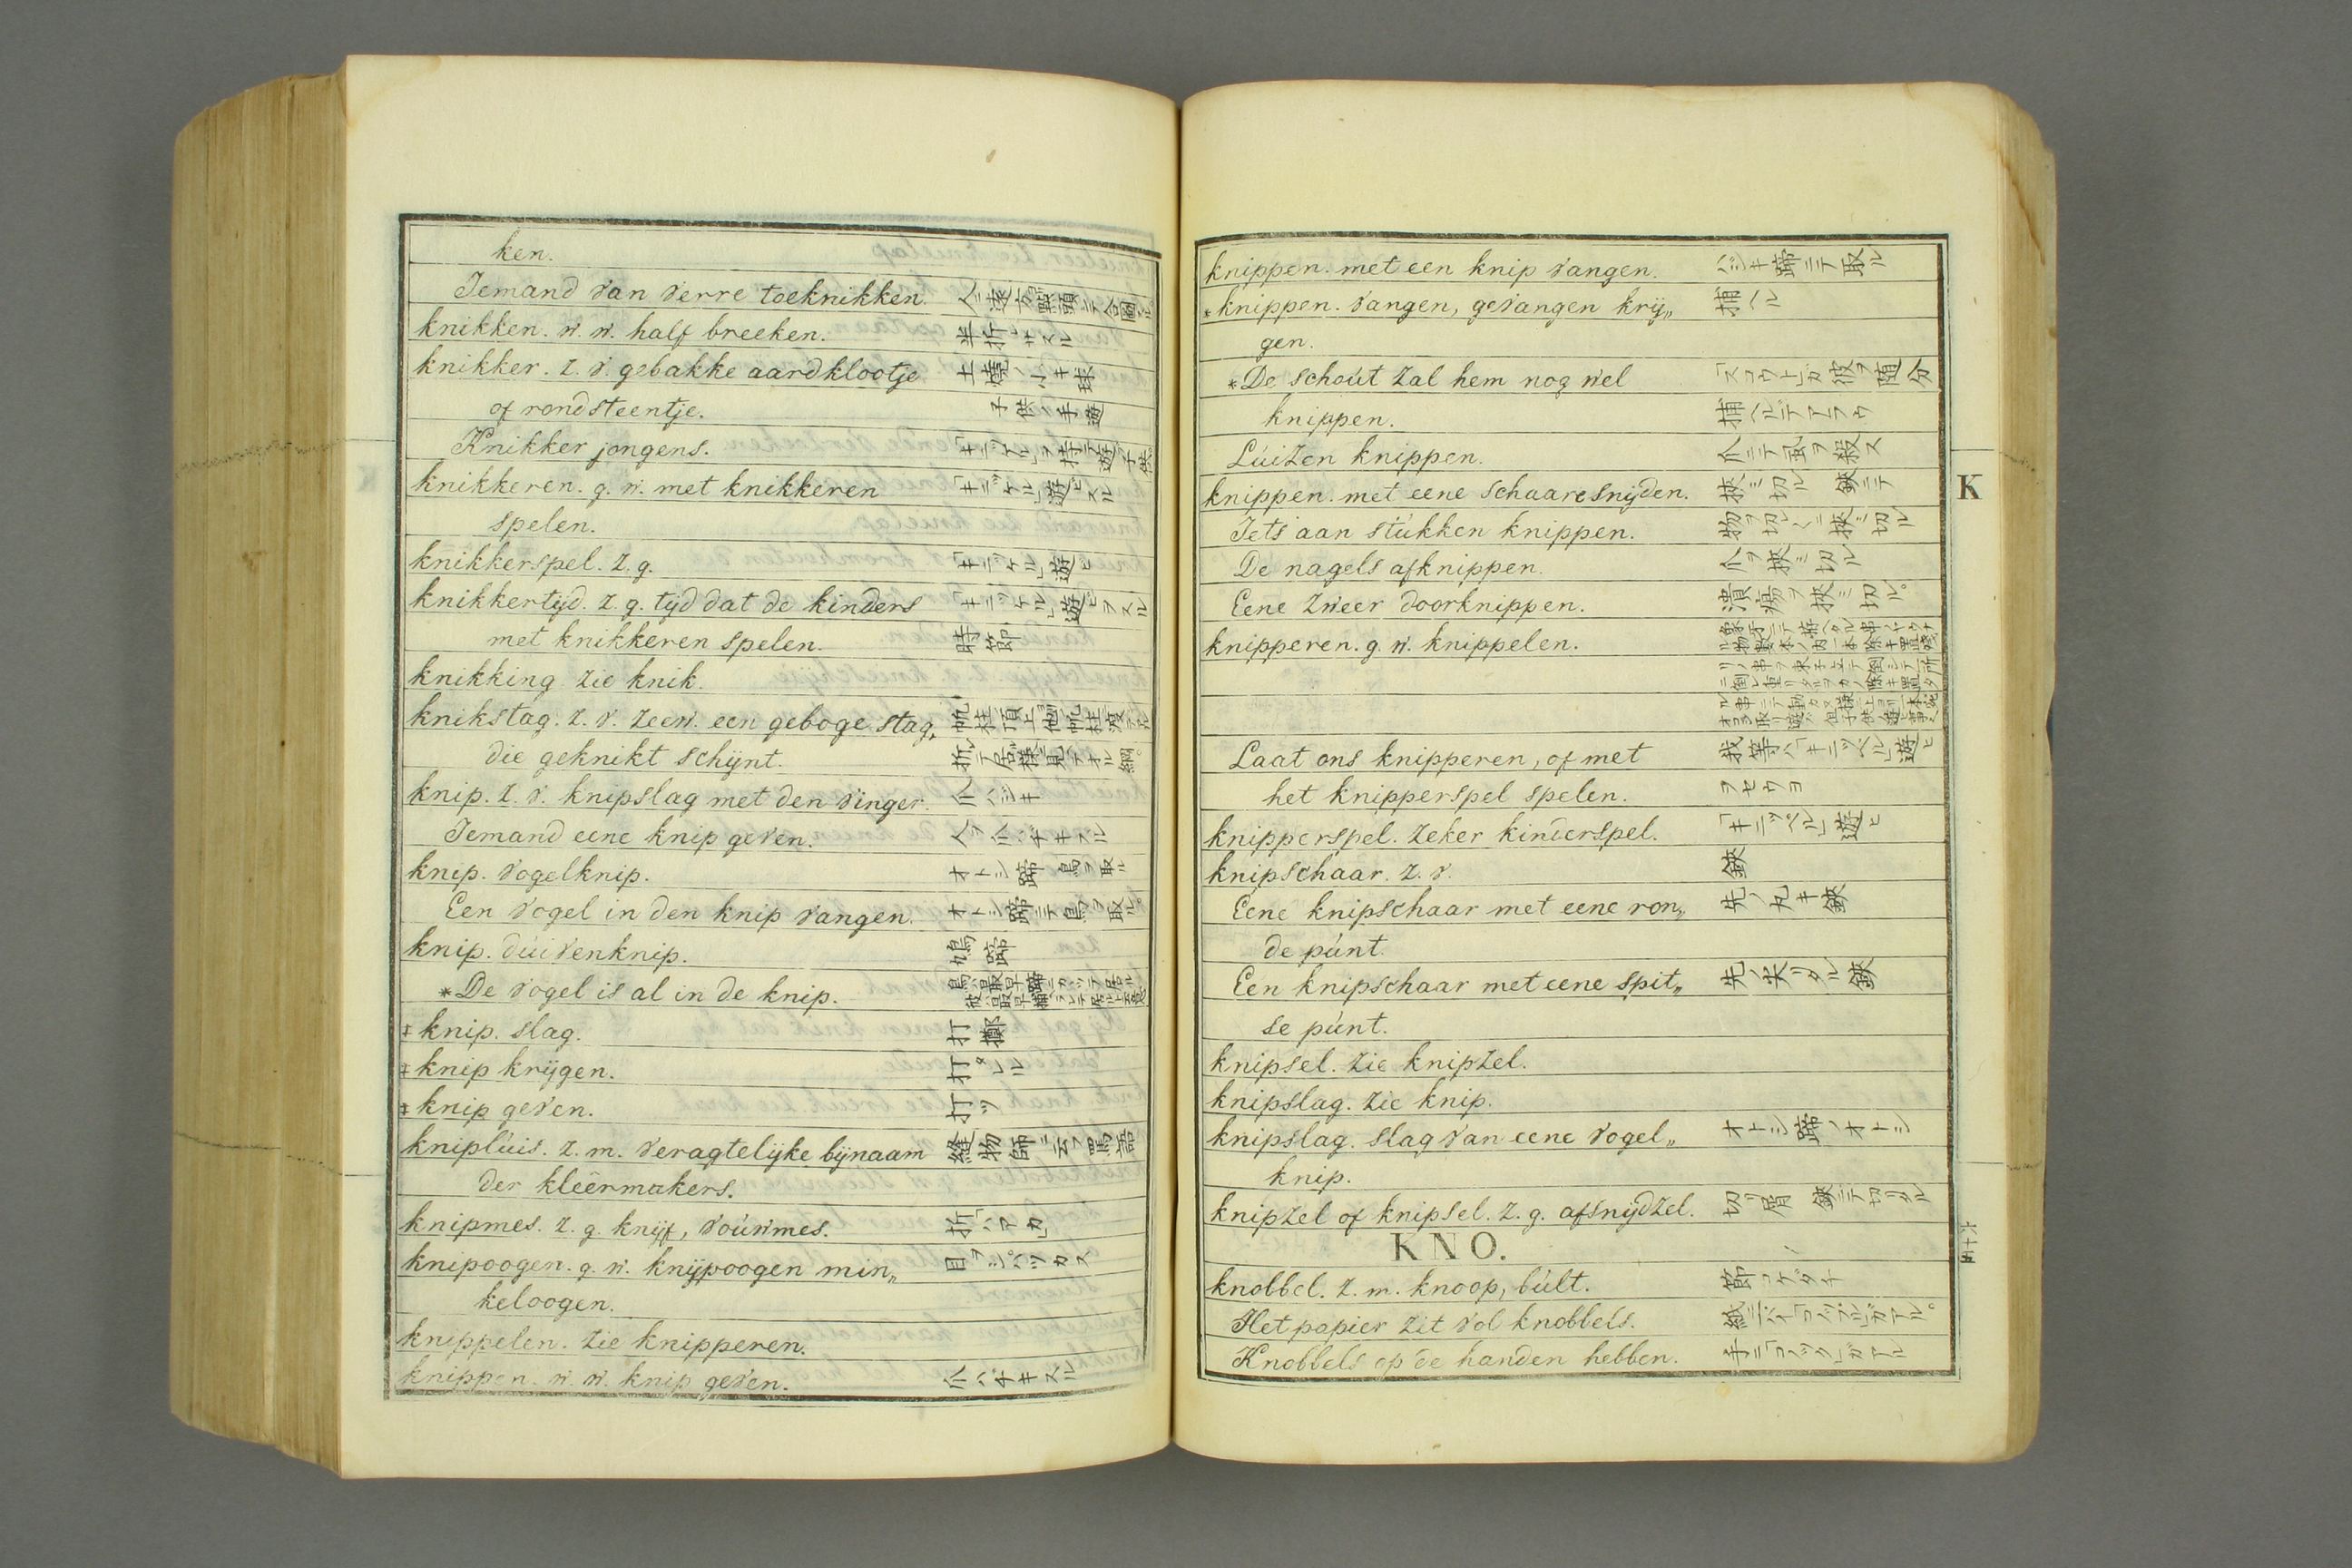 ken.
Iemand van verre toeknikken.
knikken. w. w. half breeken. 半折サスル
knikker. z. v. gebakke aardklootje 土燒ノ小キ球
of rond steentje. 子供ノ手遊
Knikker jongens. 「キニッケル」ヲ持テ遊フ子供
knikkeren. g. w. met knikkeren 「キニッケル」遊ビスル
spelen.
knikkerspel. z. g. 「キニッケル」遊ヒ
knikkertyd. z. g. tyd dat de kinders 「キニッケル」遊ビヲスル
met knikkeren spelen. 時節
knikking zie knik.
knikstag. z. v. zeew. een geboge stag,
die geknikt schynt.
knip. z. v. knipslag met den vinger. 爪ハジキ
Iemand eene knip geven. 人ヲ爪ハヂキスル
knip. vogelknip. オトシ蹄 鳥ヲ取ル
Een vogel in den knip vangen. オトシ蹄ニテ鳥ヲ取ル。
knip. duivenknip. 鳩蹄
*De vogel is al in de knip.
‡knip. slag. 打擲
‡knip krygen. 打タレル
‡knip geven. 打ツ
knipluis. z. m. veragtelyke bynaam 縫物師ニ云フ罵語
der kleêrmakers.
knipmes. z. g. knyf, vouwmes.
knipoogen. g. w. knypoogen min„ 目ヲシバツカス
keloogen.
knippelen. zie knipperen.
knippen. w. w. knip geven. 爪ハヂキスル
knippen. met een knip vangen. ハジキ蹄ニテ取ル
*knippen. vangen, gevangen kry„ 捕ヘル
gen.
*De schout zal hem nog wel 「スコウト」ガ彼ヲ随分
knippen. 捕ヘルデアラウ
Luizen knippen. 爪ニテ虱ヲ殺ス
knippen. met eene schaare snyden. 挾ミ切ル 鋏ニテ
Iets aan stukken knippen.
De nagels afknippen. 爪ヲ挾ミ切ル
Eene zweer doorknippen. 潰瘍ヲ挾ミ切ル。
knipperen. g. w. knippelen.
Laat ons knipperen, of met 我等ハ「キニッペル」遊ヒ
het knipperspel spelen. ヲセウヨ
knipperspel. zeker kinderspel. 「キニッペル」遊ヒ
knipschaar. z. v. 鋏
Eene knipschaar met eene ron„ 先ノ丸キ鋏
de punt.
Een knipschaar met eene spit„ 先ノ尖リタル鋏
se punt.
knipsel. zie knipzel.
knipslag. zie knip.
knipslag. slag van eene vogel„ オトシ蹄ノオトシ
knip.
knipzel of knipsel. z. g. afsnydzel. 切リ屑 鋏ニテ切リタル
KNO.
knobbel. z. m. knoop, bult. 節 コブダチ
Het papier zit vol knobbels.
Knobbels op de handen hebben.
K